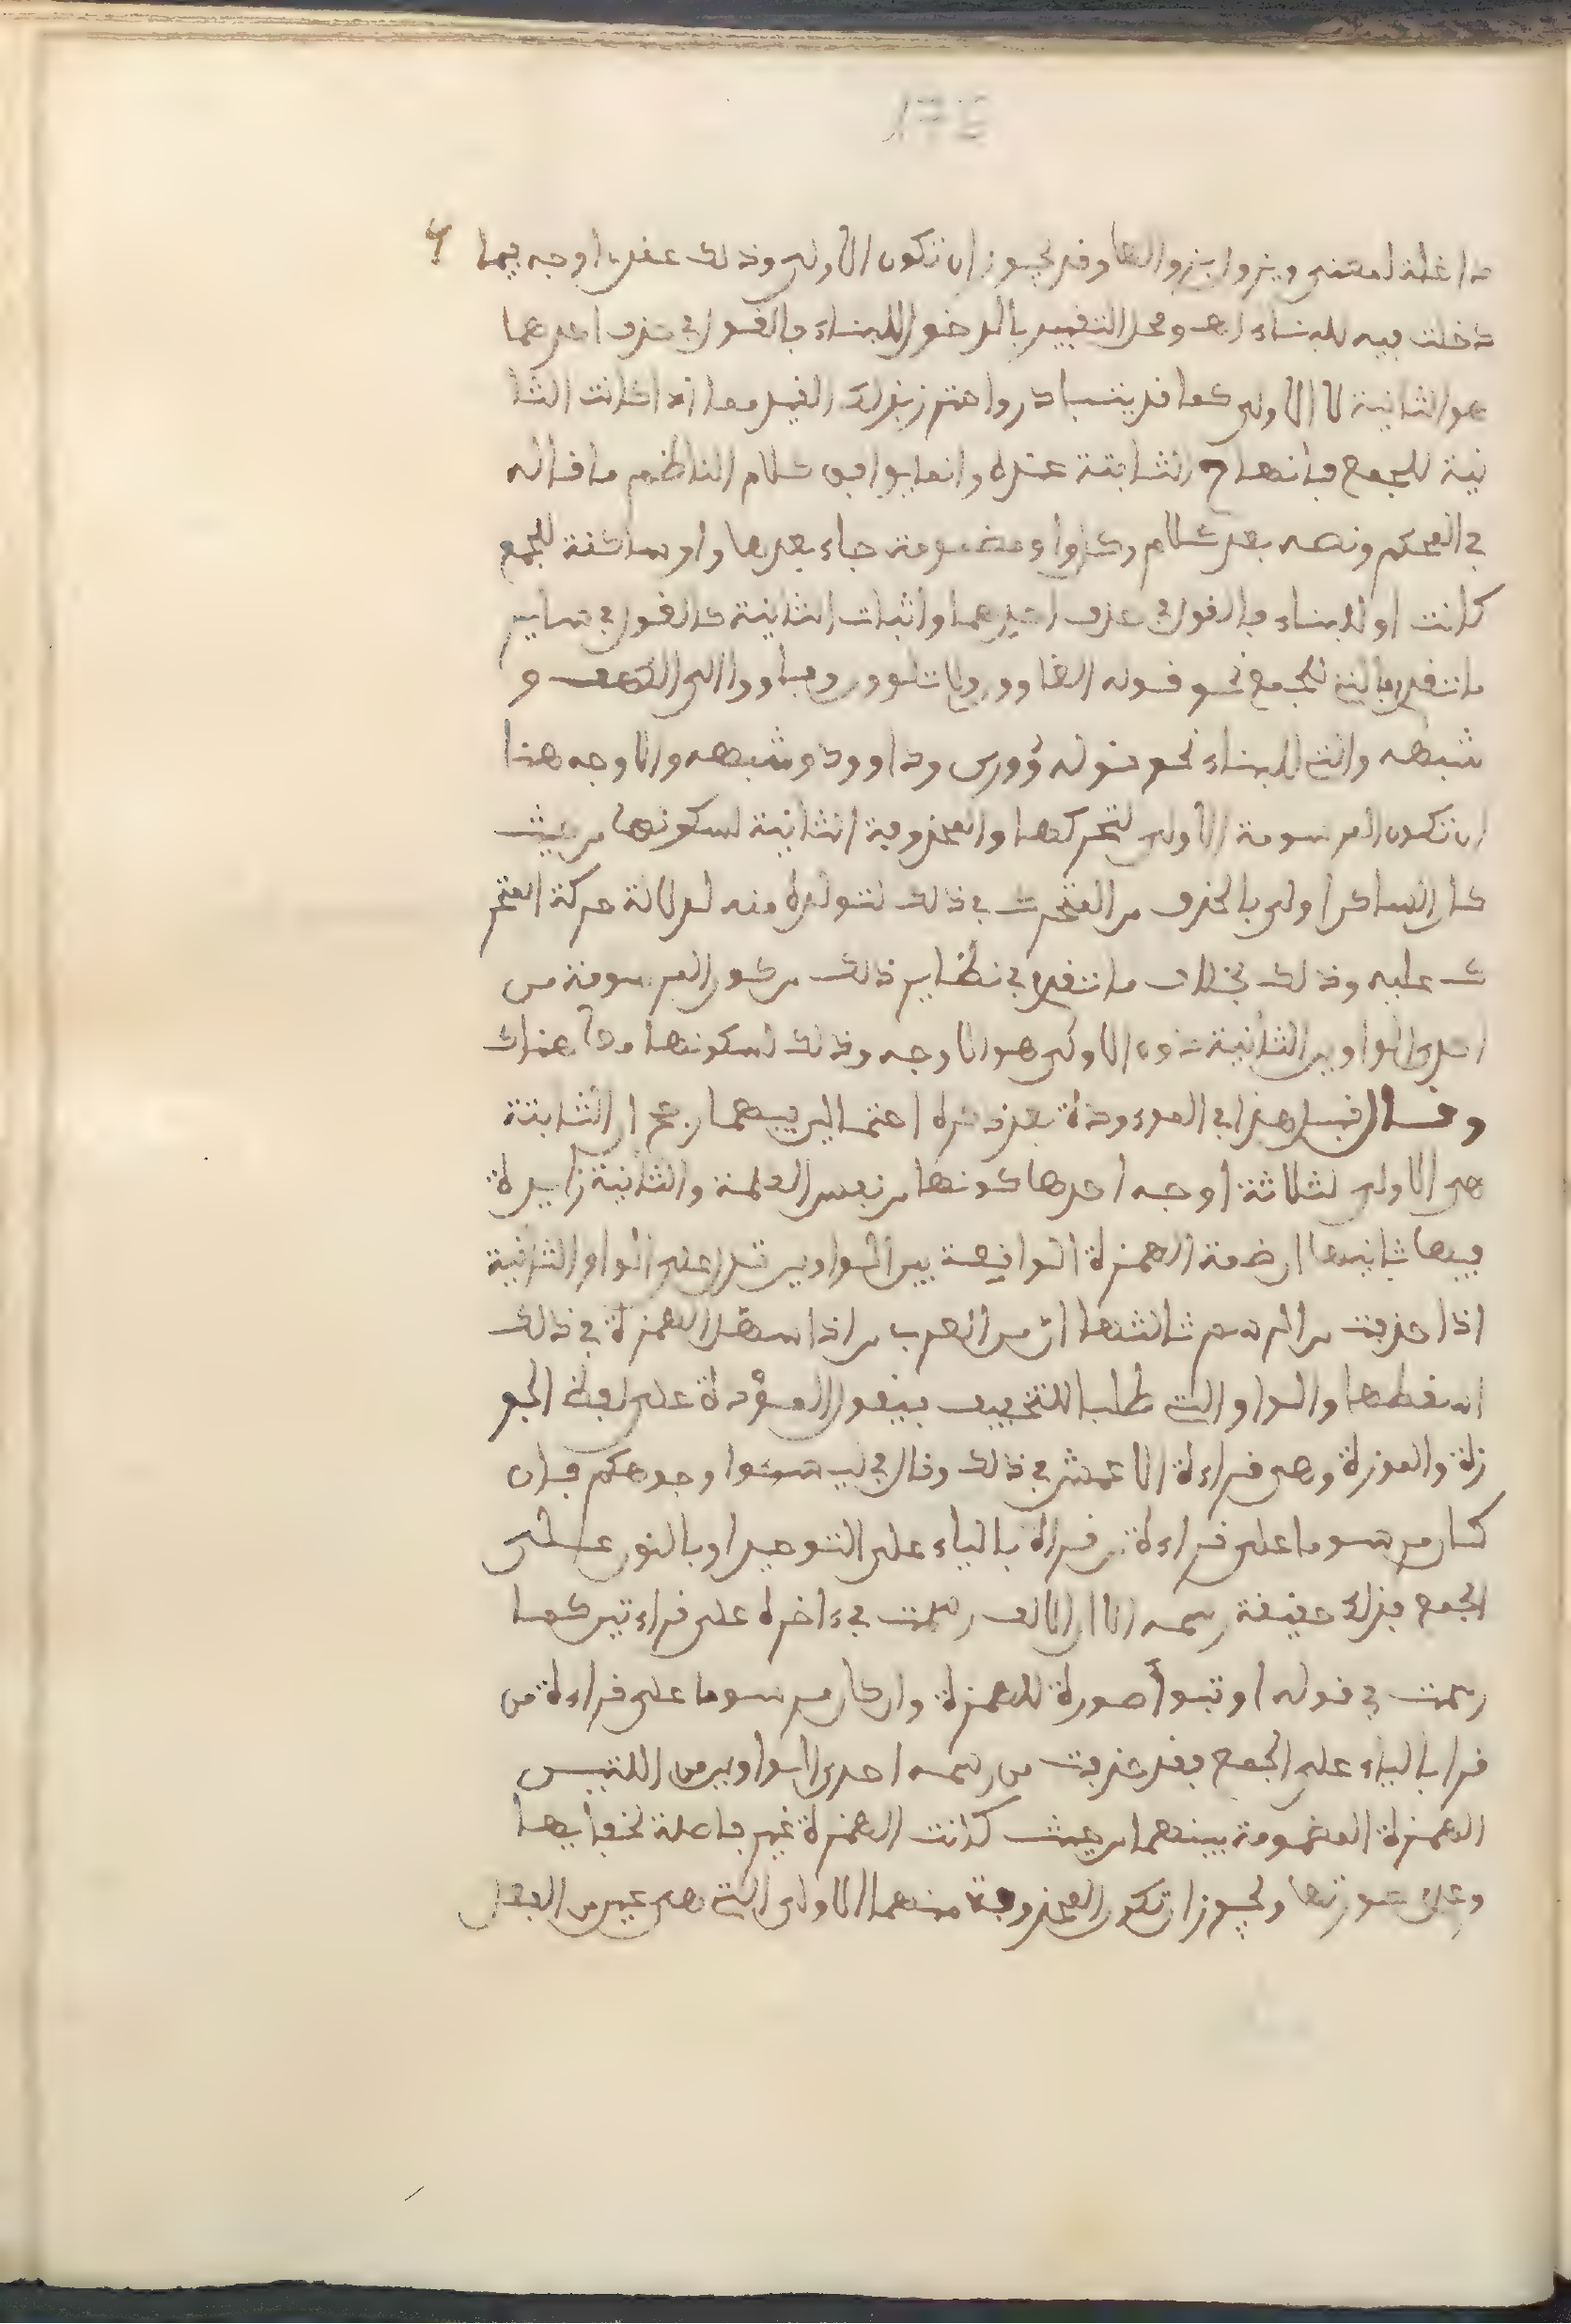 داخلة لمعنى ويزول بزوالها وقد يجوز ان تكون الاولى وذلك عندى اوجه فيما
دخلت فيه للبناء اهـ ومحل التقييد بالدخول للبناء فالقول في حذف احدهما
هو الثانية لا الاولى كما قد يتبادر واحترز بذلك القيد مما اذا كانت الثا
نية للجمع فانها ح الثابتة عنده وانما يوافق كلام الناظم ما قاله
في المحكم ونصه بعد كلام وكل واو مضمومة جاء بعدها واو ساكنة للجمع
كانت او للبناء فالقول في حذف احديهما واثبات الثانية كالقول في ساير
ما تقدم فالتى للجمع نحو قوله الغاوون ولا تلوون وفاووا الى الكهف و
شبهه والتى للبناء نحو قوله وورى وداوود وشبهه والاوجه هنا
ان تكون المرسومة الاولى لتحركها والمحذوفة الثانية لسكونها من حيث
كان الساكن اولى بالحذف من المتحرك في ذلك لتولده منه لدلالة حركة المتحر
ك عليه وذلك بخلاف ما تقدم في نظاير ذلك من كون المرسومة من
احدى الواوين الثانية دون الاولى هو الاوجه وذلك لسكونها معا هناك
وقال قبل هذا في الموءودة بعد ذكره احتمالين فيهما رجح ان الثابتة
هي الاولى لثلاثة اوجه احدها كونها من نفس الكلمة والثانية زايدة
فيها ثانيها ان ضمة الهمزة الواقعة بين الواوين تدل على الواو الثانية
اذا حذفت من الرسم ثالثها ان من العرب من اذا سهل الهمزة في ذلك
اسقطها والواو التى طلبا للتخفيف فيقول الموْدة على لفظ الجو
زة والموزة وهي قراءة الاعمش في ذلك وقال في ليسـوا وجوهكم فان
كان مرسوما على قراءة من قراه بالياء على التوحيد او بالنون على
الجمع فذلك حقيقة رسمه الا ان الالف رسمت في ءاخره على قراءتين كما
رسمت في قوله ان تبوأ صورة للهمزة وان كان مرسوما على قراءة من
قرا بالياء على الجمع فقد حذفت من رسمه احدى الواوين من اللتين
الهمزة المضمومة بينهما من حيث كانت الهمزة غير فاصلة لخفايها
وعدم صورتها ويجوز ان تكون المحذوفة منهما الاولى التى هي عين من الفعل